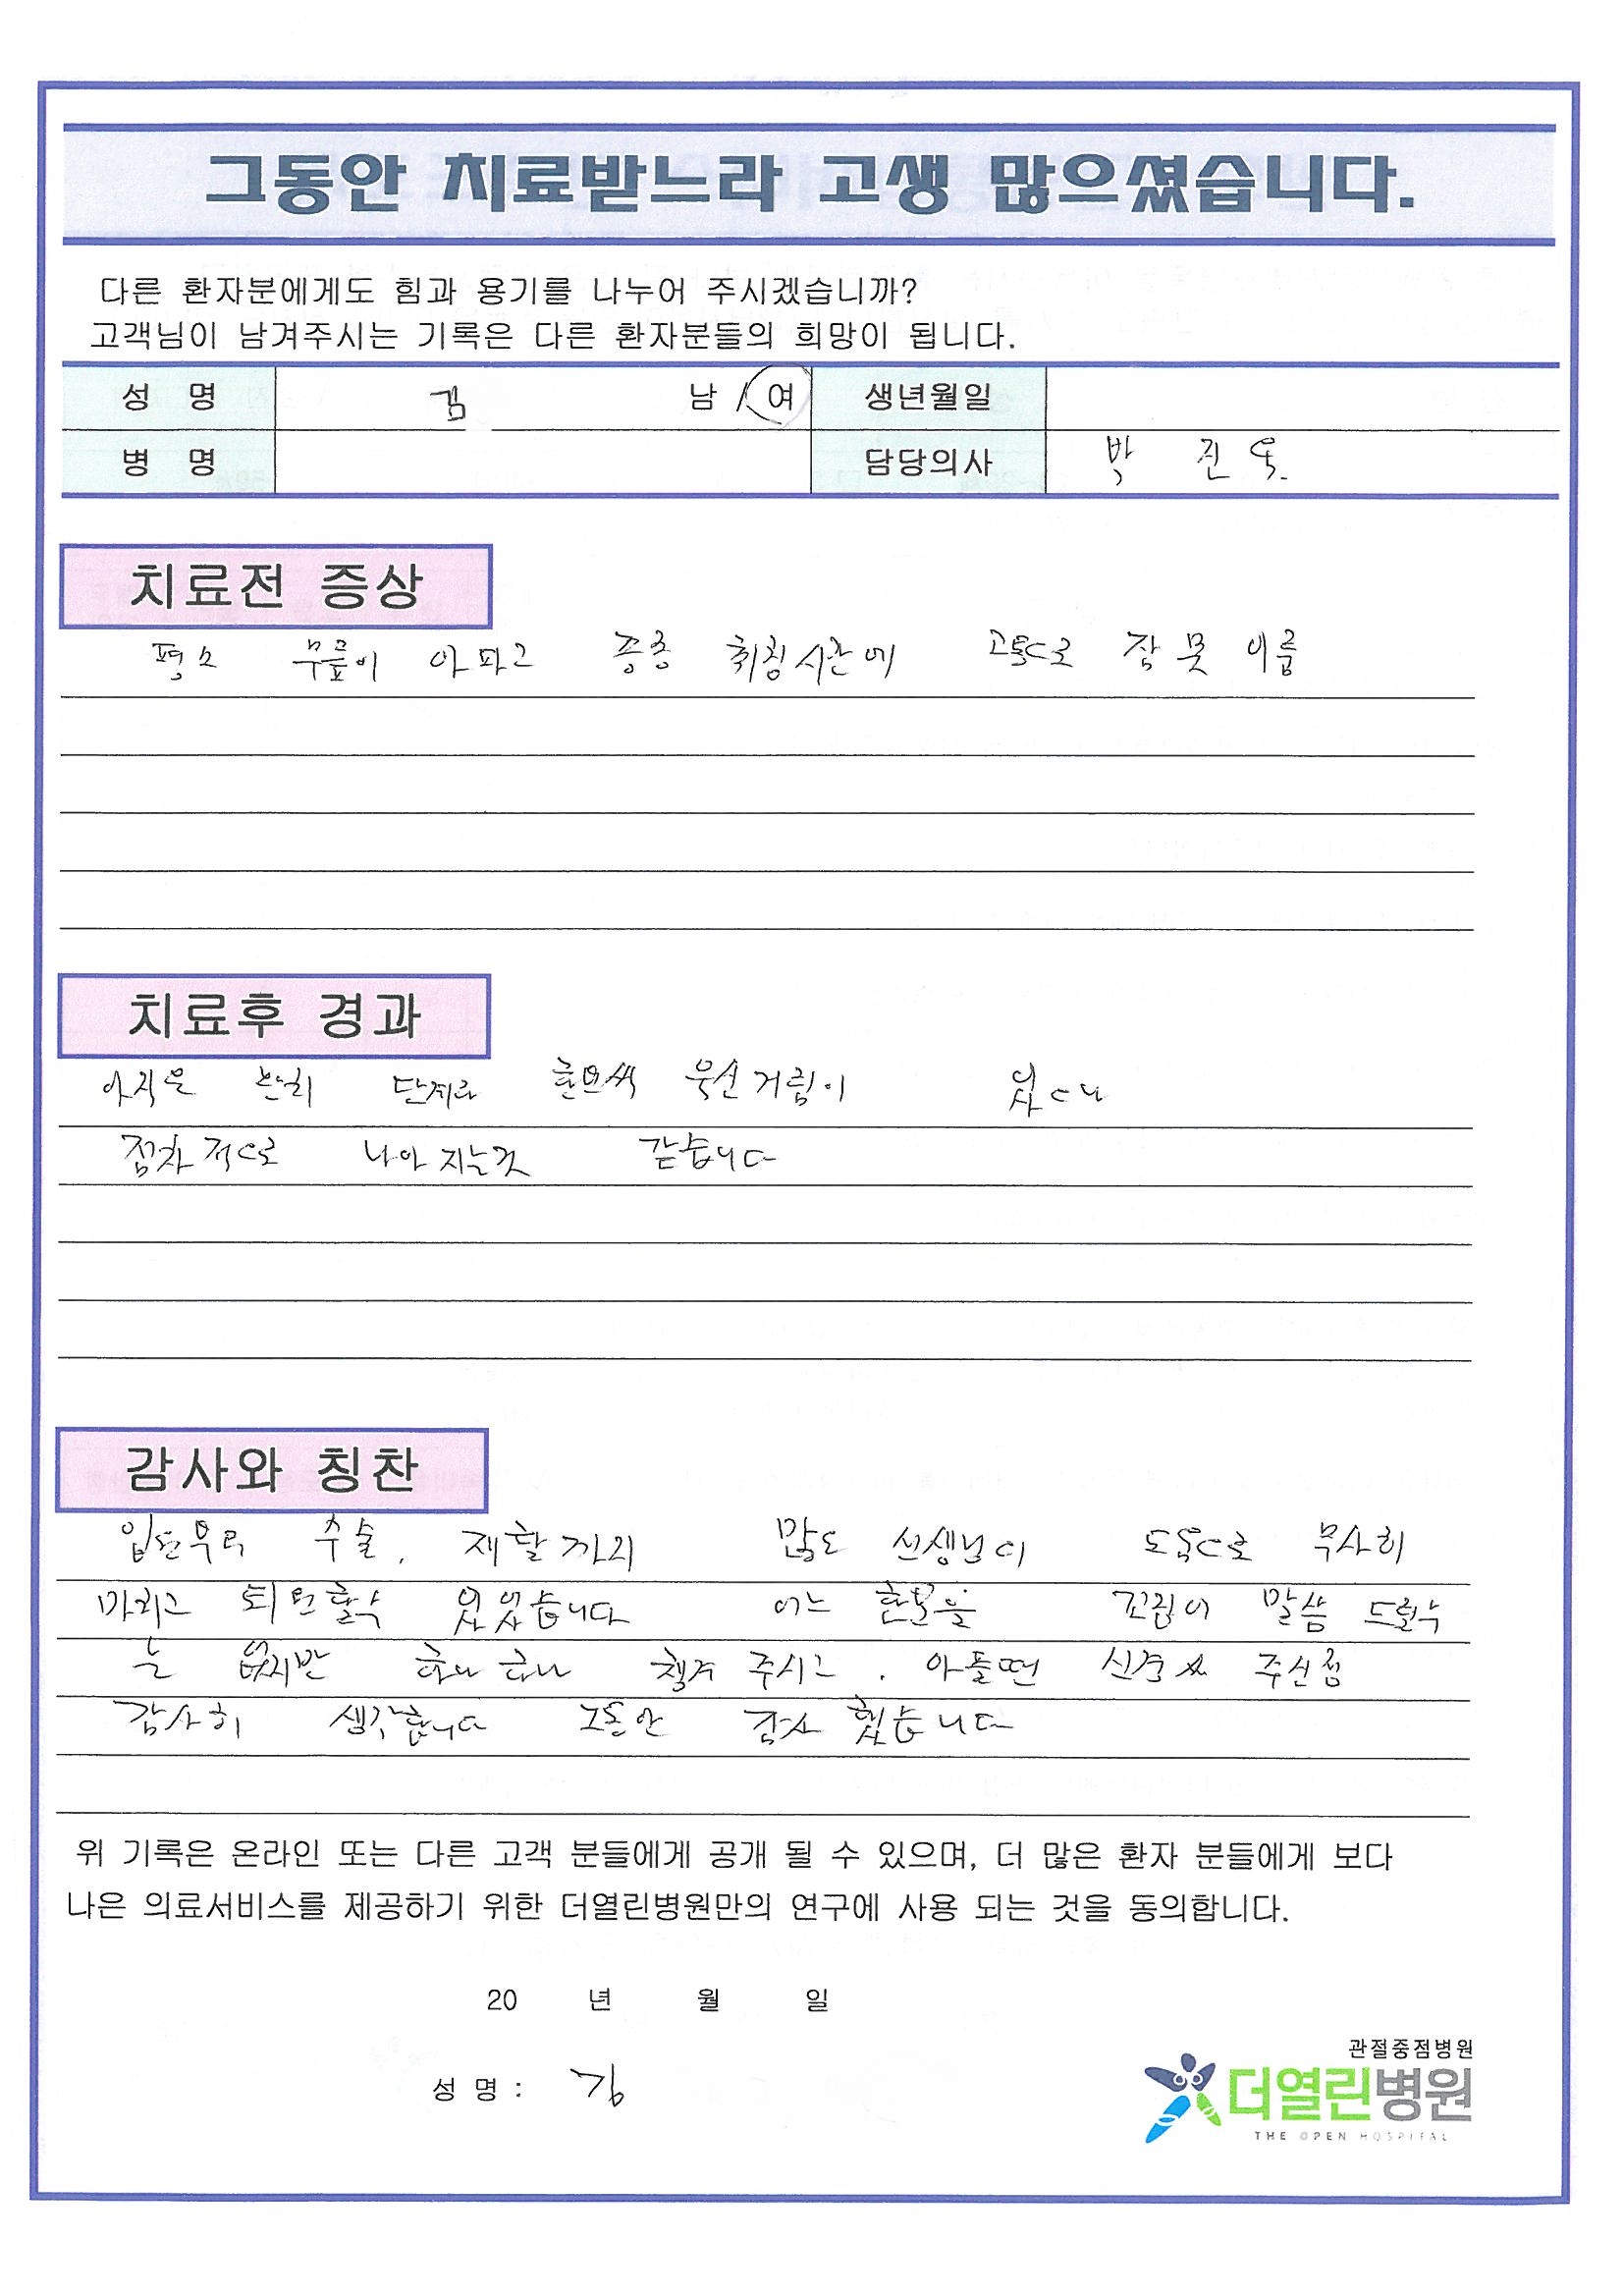 그동안 치료받느라 고생 많으셨습니다.
다른 환자분에게도 힘과 용기를 나누어 주시겠습니까?
고객님이 남겨주시는 기록은 다른 환자분들의 희망이 됩니다.
성 명 김 남 / 여 생년월일
병 명 담당의사 박 진 옥
치료전 증상
평소 무릎이 아파고 종종 취침시간에 고통으로 잠 못 이룸
치료후 경과
아직은 단계라 욱신거림이 있으나
점차적으로 나아지는것 같습니다
감사와 칭찬
입원부터 수술, 재활까지 많은 선생님이 도움으로 무사히
마치고 퇴원할수 있었습니다 어느 한분을 꼬집어 말씀 드릴수
는 없지만 하나하나 챙겨 주시고, 신경써 주신점
감사히 생각합니다 그동안 감사 했습니다
위 기록은 온라인 또는 다른 고객 분들에게 공개 될 수 있으며, 더 많은 환자 분들에게 보다
나은 의료서비스를 제공하기 위한 더열린병원만의 연구에 사용 되는 것을 동의합니다.
20 년 월 일
성 명 : 김
관절중점병원
더열린병원
THE OPEN HOSPITAL